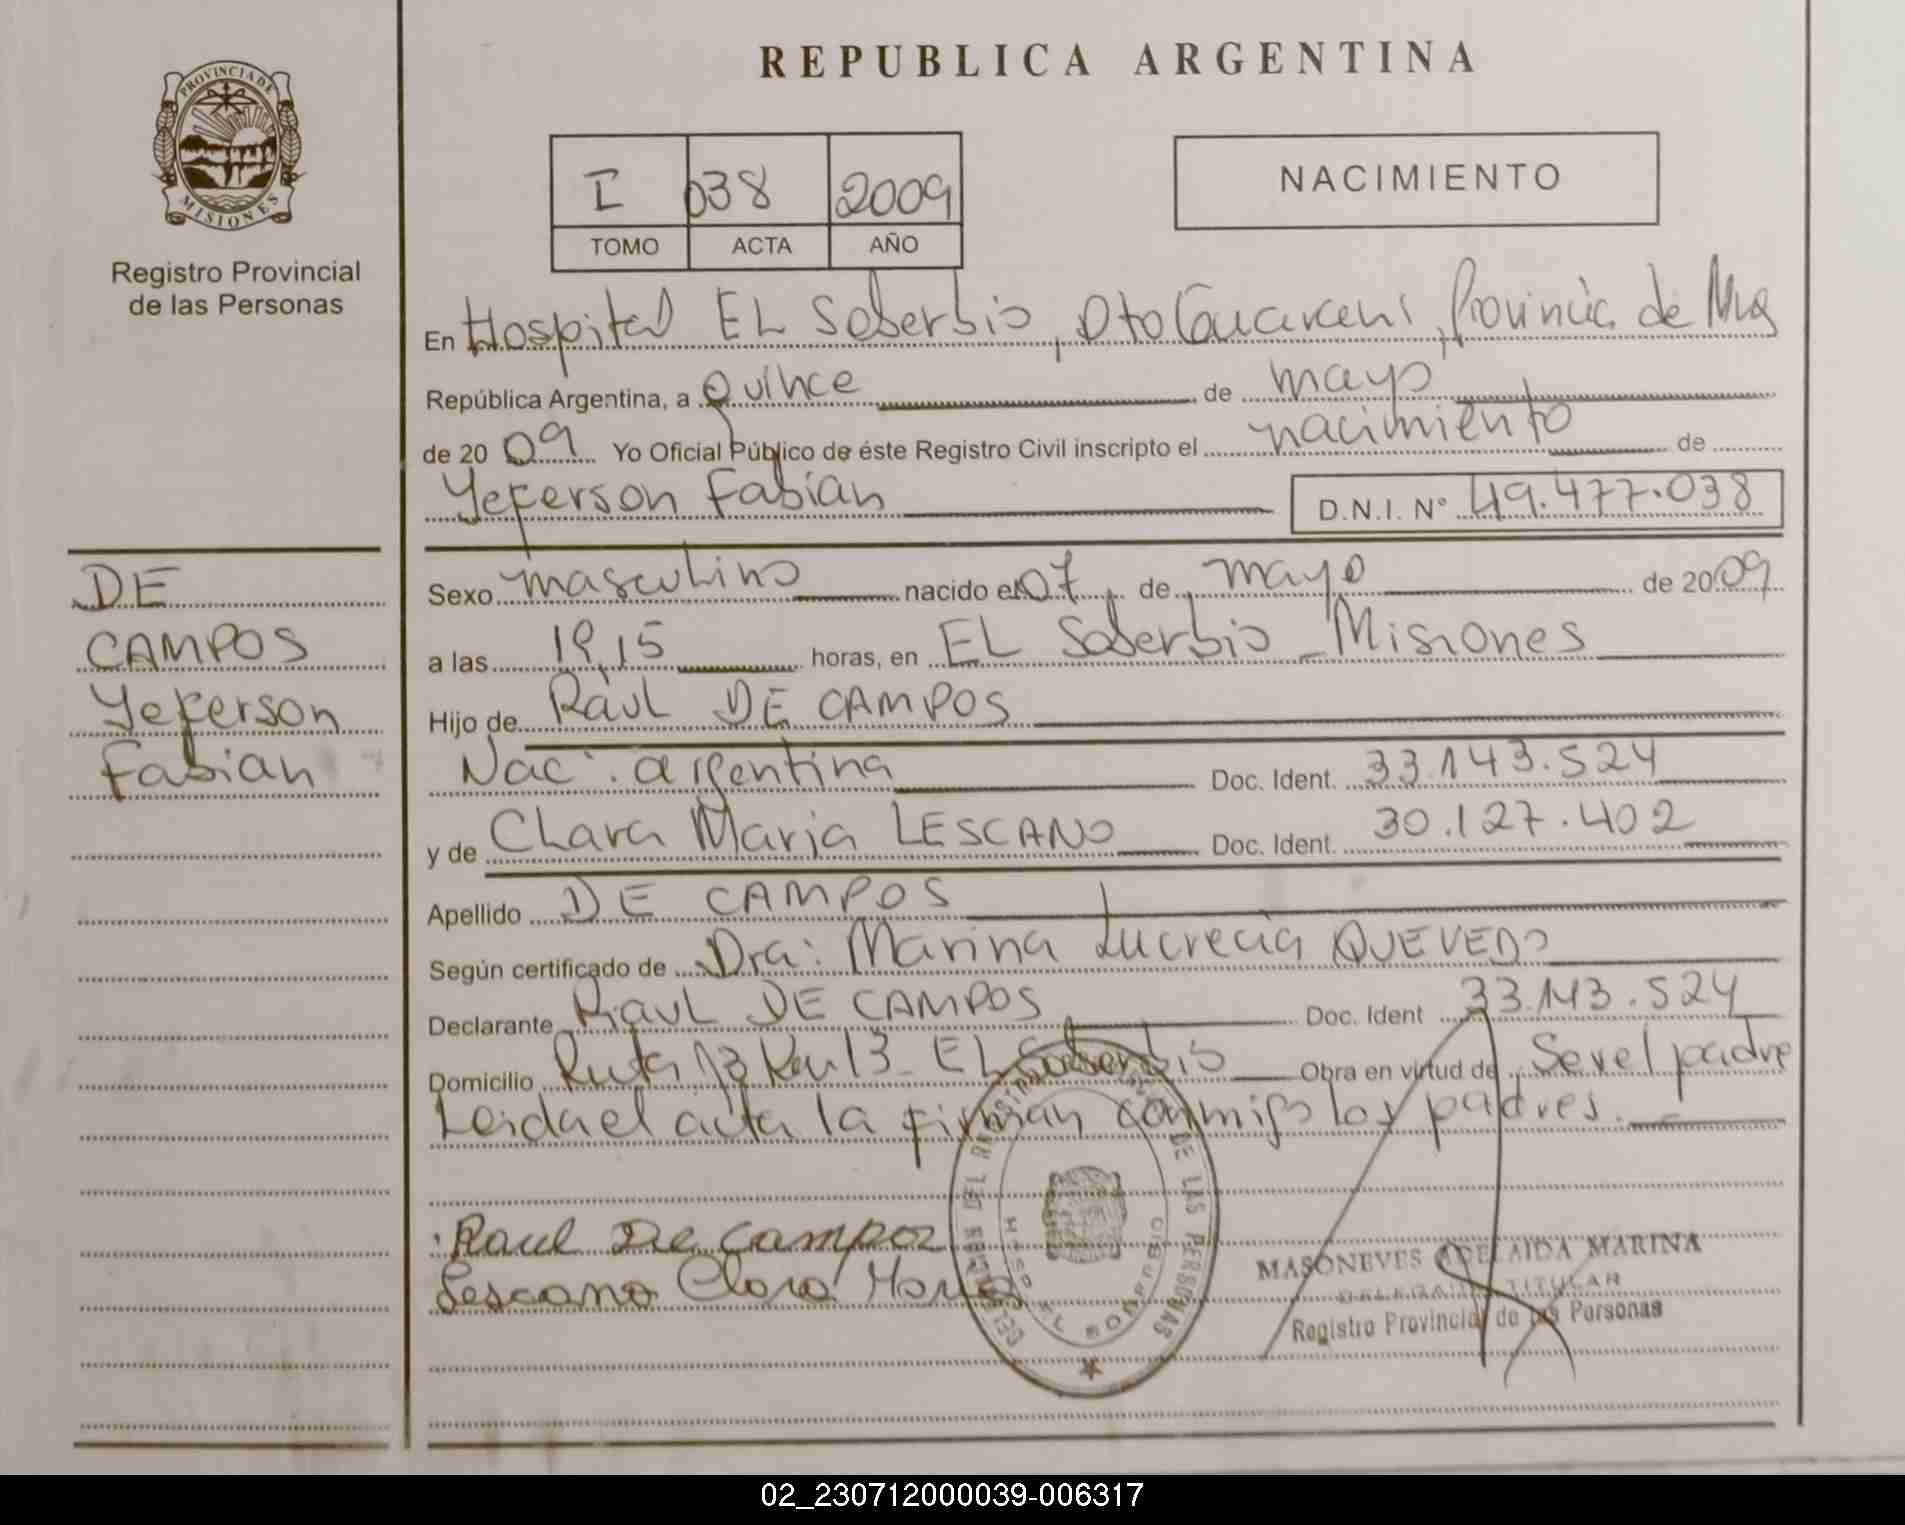 REPUBLICA ARGENTINA
PROVINCIA DE
MISIONES
Registro Provincial
de las Personas
I 038 2009
TOMO ACTA AÑO
NACIMIENTO
En Hospital EL Soberbio, Dto Guarani, Provincia de Mns
República Argentina, a Quince de mayo
de 2009 Yo Oficial Público de éste Registro Civil inscripto el nacimiento de
Yeferson Fabian D.N.I. Nº 49.477.038
DE
CAMPOS
Yeferson
Fabian
Sexo masculino nacido el 07 de mayo de 2009
a las 19,15 horas, en EL Soberbio - Misiones
Hijo de Raul DE CAMPOS
Nac: argentina Doc. Ident. 33.143.524
y de Clara Maria LESCANO Doc. Ident. 30.127.402
Apellido DE CAMPOS
Según certificado de Dra: Marina Lucrecia QUEVEDO
Declarante Raul DE CAMPOS Doc. Ident 33.143.524
Domicilio Ruta 13 Km 13 - EL Soberbio Obra en virtud de Ser el padre
Leida el acta la firman conmigo los padres.
Raul De Campoz
Lescano Clara Maria
DE LAS PERSONAS
HOSP. EL SOBERBIO
MASONEVES ADELAIDA MARINA
DELEGADA TITULAR
Registro Provincial de las Personas
02_230712000039-006317